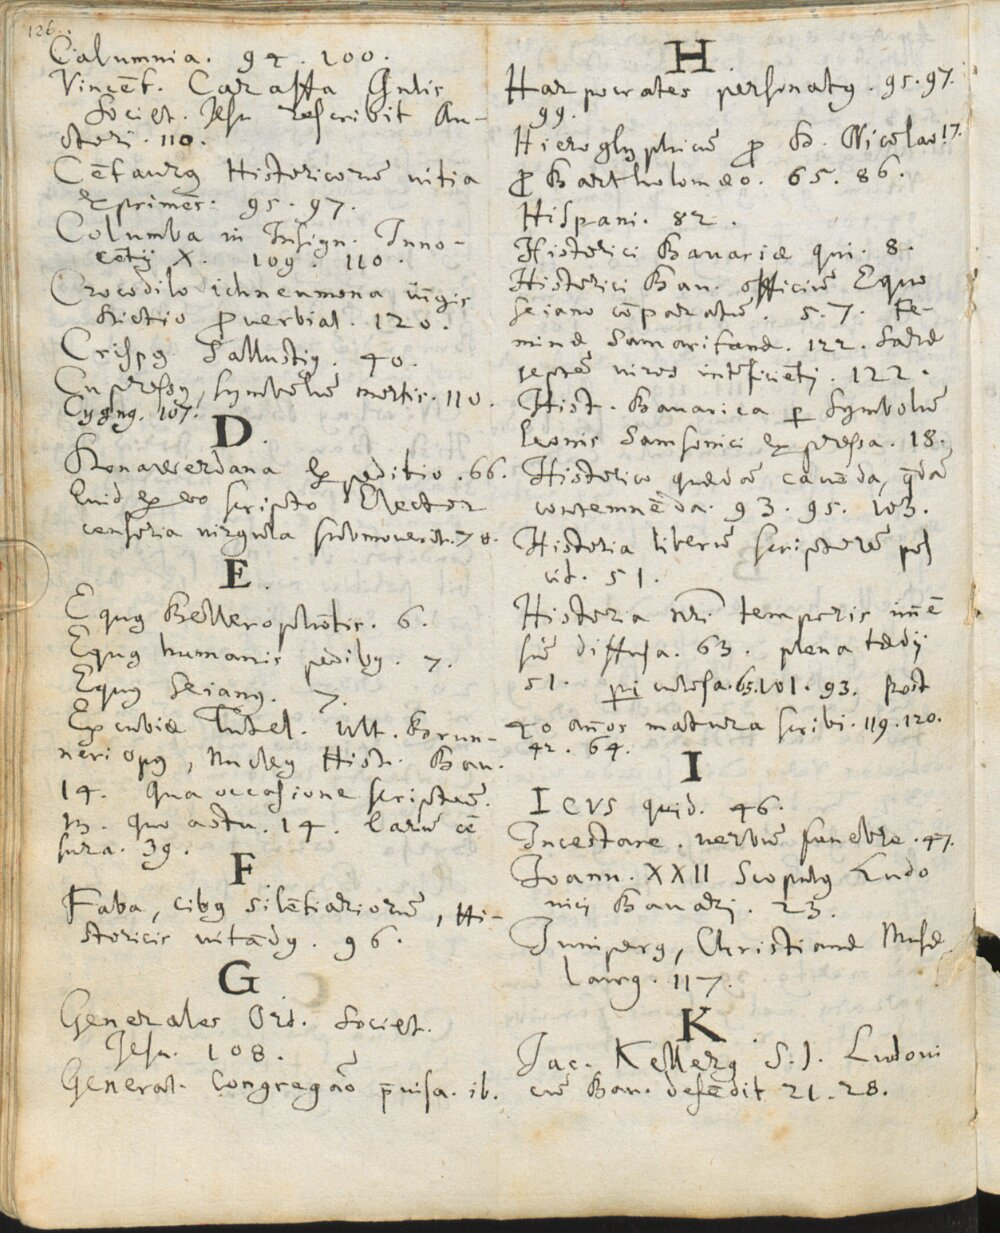 126.
Calumnia. 94. 100.
Vincēt. Caraffa Gn̄lis
Societ. Jesu rescribit Au-
ctori. 110.
Cētaurꝰ Historicorū vitia
exprimēs. 95. 97.
Columba in Insign. Inno-
cētij X. 109. 110.
Crocodilo ichneumona
dictio ꝓverbial. 120.
Crispꝰ Sallustiꝰ. 40.
Cupressꝰ, symbolū mortis. 110.
Cygnꝰ. 107.
D.
Donawerdana expeditio. 66.
Quid ex eo scripto Elector
censoria virgula submoverit. 78.
E.
Equꝰ Bellerophōtis. 6.
Equꝰ humanis pedibꝰ. 7.
Equꝰ Seianꝰ. 7.
Excubiæ Tutel. ult. Brun-
neri opꝰ, nucleꝰ Hist. Bau.
14. Qua occasione scriptū.
13. quo actu. 14. Earū cē
sura. 39.
F
Faba, cibꝰ silētiariorū, Hi-
storicis vitādꝰ. 96.
G
Generales Ord. Societ.
Jesu. 108.
General. Congregāo p̄visa. ib.
H
Harpocrates personatꝰ. 95. 97.
99.
Hieroglyphicū ꝓ B. Nicolao. 17.
ꝓ Bartholomæo. 65. 86.
Hispani. 82.
Historici Bavariæ qui. 8.
Historici Bau. officiū Equo
Seiano cōparatū. 5. 7. Fe-
minæ Samaritanæ. 122. Saræ
septē viros intficiēti. 122.
Hist. Bauarica ꝑ symbolū
leonis Samsonici expressa. 18.
Historico quædā cavēda, q̄dā
contemnēda. 93. 95. 103.
Historia liberū scriptorē pos
cit. 51.
Historia nr̄i temporis im̄ē
sū diffusa. 63. plena tædij
51. 65. 101. 93. post
40 an̄os matura scribi. 119. 120.
42. 64.
I
ICVS quid. 46.
Incestare. verbū funebre. 47.
Joann. XXII Scopulꝰ Ludo
vici Bavari. 23.
Juniperꝰ, Christianæ Musæ
laurꝰ. 117.
K
Jac. Kellerꝰ S.J. Ludovi
cū Bau. defēdit 21. 28.